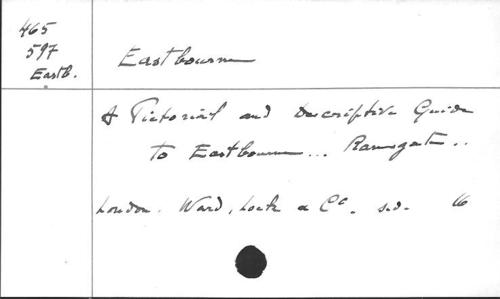 465
597
Eastb.
Eastbourne
A Pictorial and Descriptive Guide
to Eastbourne... Ramsgate..
London. Ward, Lock & Co. s.d. 16